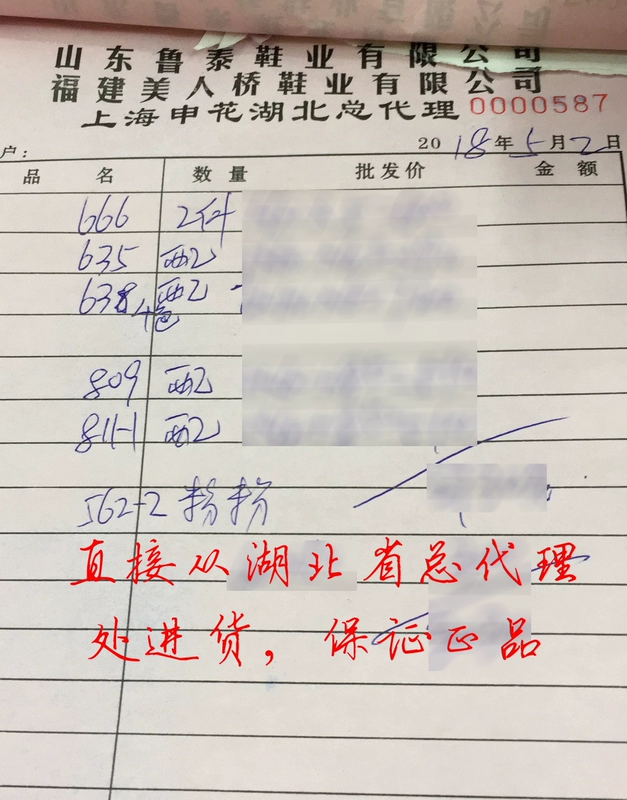 山东鲁泰鞋业有限公司
福建美人桥鞋业有限公司
上海申花湖北总代理 0000587
户: 2018年5月2日
品 名 数 量 批发价 金 额
666 2件
635 配
638 配
809 配
811-1 配
562-2
直接从湖北省总代理
处进货，保证正品